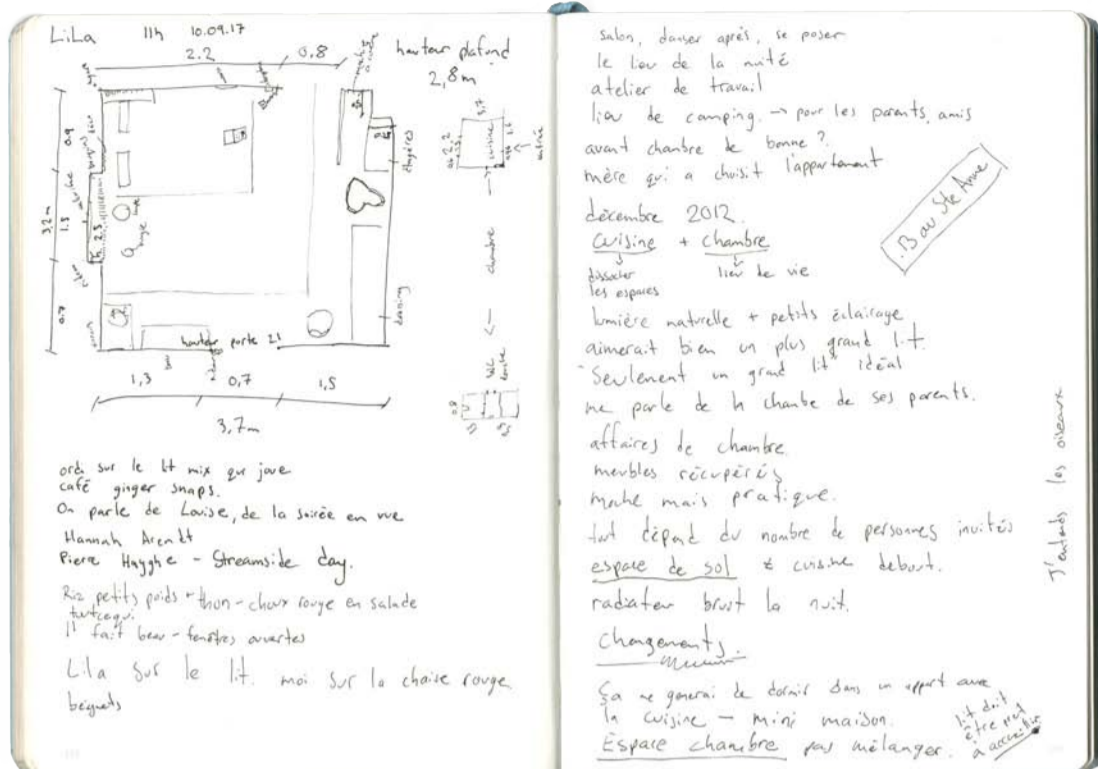 LiLa 11h 10.09.17
2.2 0,8
hauteur plafond
2,8m
0.9
3.2m
1.5
h 2.5
0.7
étagères
chambre
cuisine
entrée
3,7
2,2
hauteur porte 2.1
1,3 0,7 1,5
3,7m
0.8
ordi sur le lit mix qui joue
café ginger snaps.
On parle de Louise, de la soirée en vue
Hannah Arendt
Pierre Huyghe - Streamside day.
Riz petits poids + thon - choux rouge en salade
Il fait beau - fenêtres ouvertes
Lila sur le lit. moi sur la chaise rouge
beignets
salon, danser après, se poser
le lieu de la
atelier de travail
lieu de camping. → pour les parents, amis
avant chambre de bonne ?
mère qui a choisit l'appartement
13 av Ste Anne
décembre 2012.
cuisine + chambre
dissocier lieu de vie
les espaces
lumière naturelle + petits éclairage
aimerait bien un plus grand lit.
Seulement un grand lit idéal
me parle de la chambre de ses parents.
affaires de chambre.
meubles récupérés
moche mais pratique.
tout dépend du nombre de personnes invités
espace de sol ≠ cuisine debout.
radiateur bruit la nuit.
changements.
Ça me generai de dormir dans un appart avec
la cuisine - mini maison.
Espace chambre pas mélanger.
lit doit
être prêt
à accueillir
J'entends les oiseaux